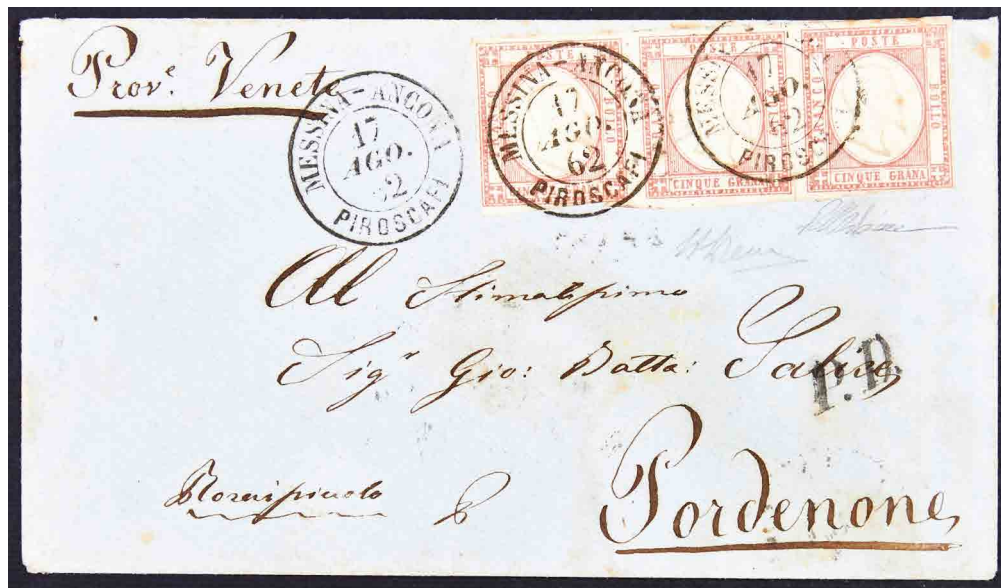 Prov.e Venete
MESSINA - ANCONA
17
AGO.
62
PIROSCAFI
MESSINA - ANCONA
17
AGO.
62
PIROSCAFI
MESSINA
17
AGO.
62
PIROSCAFI
FRANCO BOLLO
CINQUE GRANA
POSTE
FRANCO BOLLO
CINQUE GRANA
Al Stimatissimo
Sigr Gio: Batta:
P.D.
Pordenone